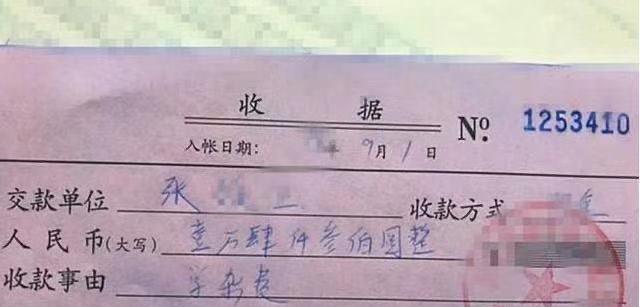 收 据
№ 1253410
入帐日期: 年 9月 1日
交款单位 张 收款方式
人民币(大写) 壹万肆仟叁佰圆整
收款事由 学杂费